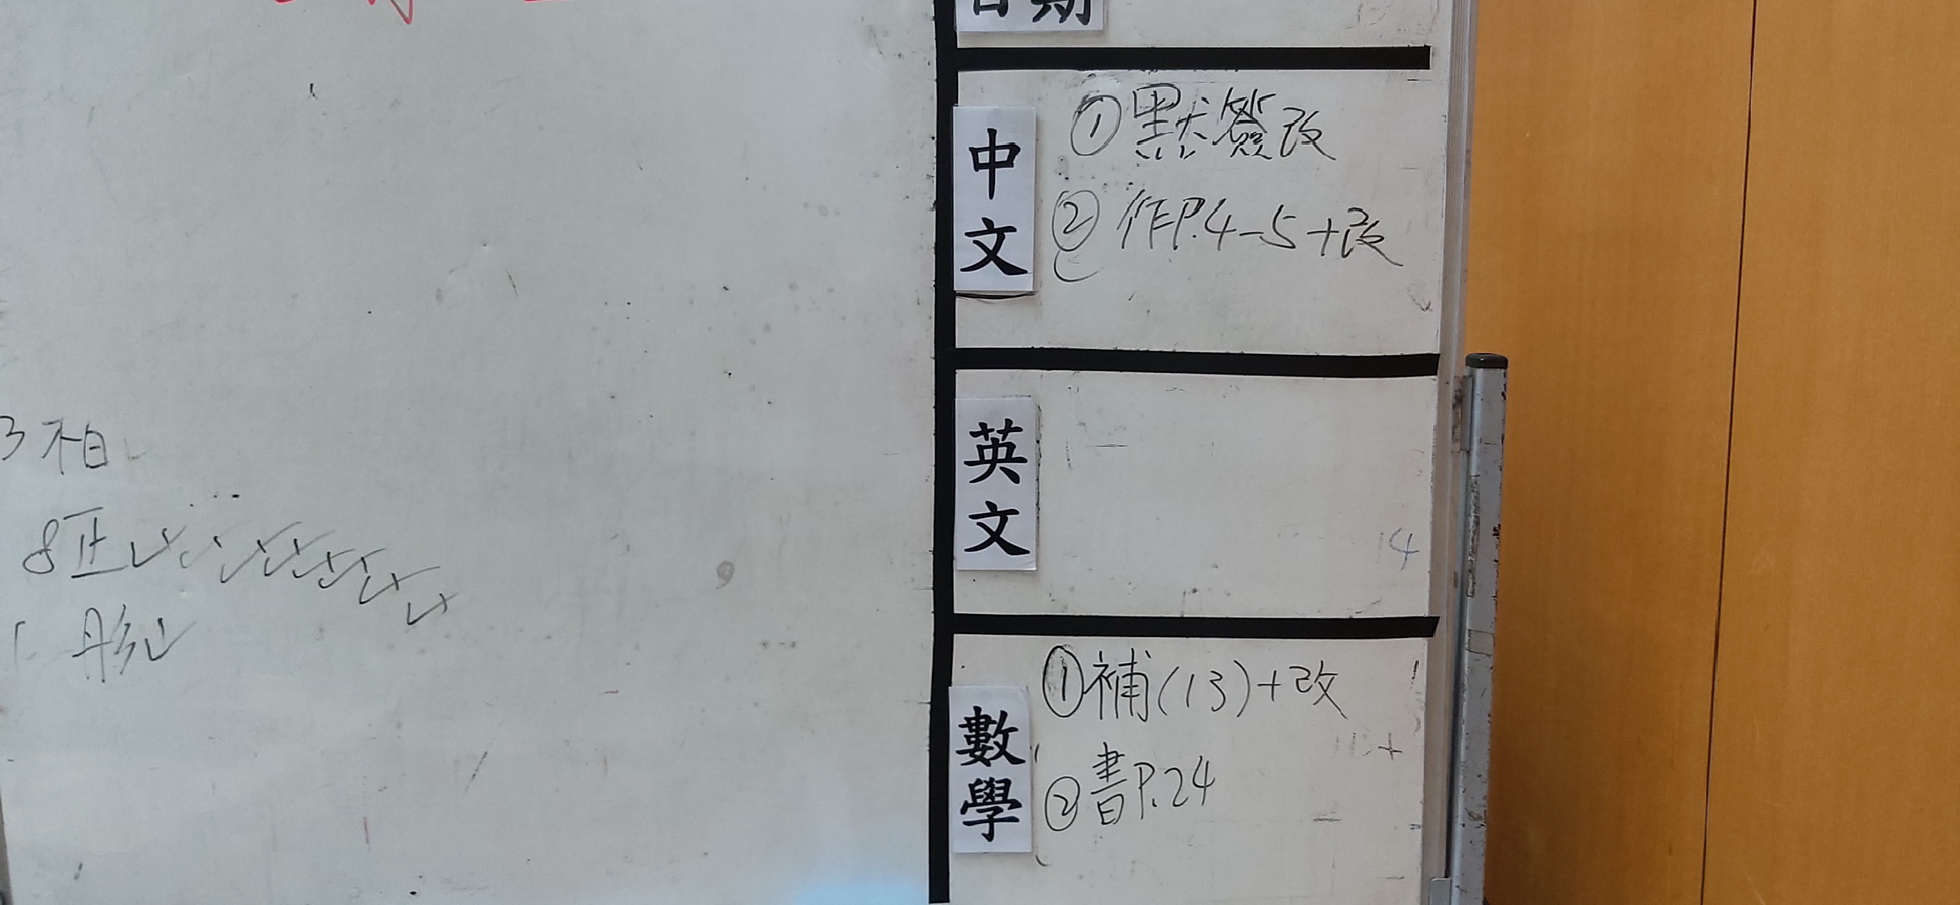 日期
中文
① 默簽改
② 作P.4-5+改
英文
14
數學
① 補(13)+改
② 書P.24
3 柏
8 正
1 彤